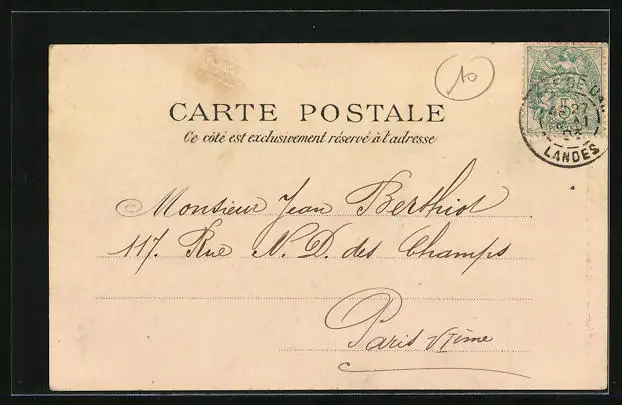 10
CARTE POSTALE
Ce côté est exclusivement réservé à l'adresse
5
27
MAI
03
LANDES
Monsieur Jean Berthiot
117. Rue N. D. des Champs
Paris VIème